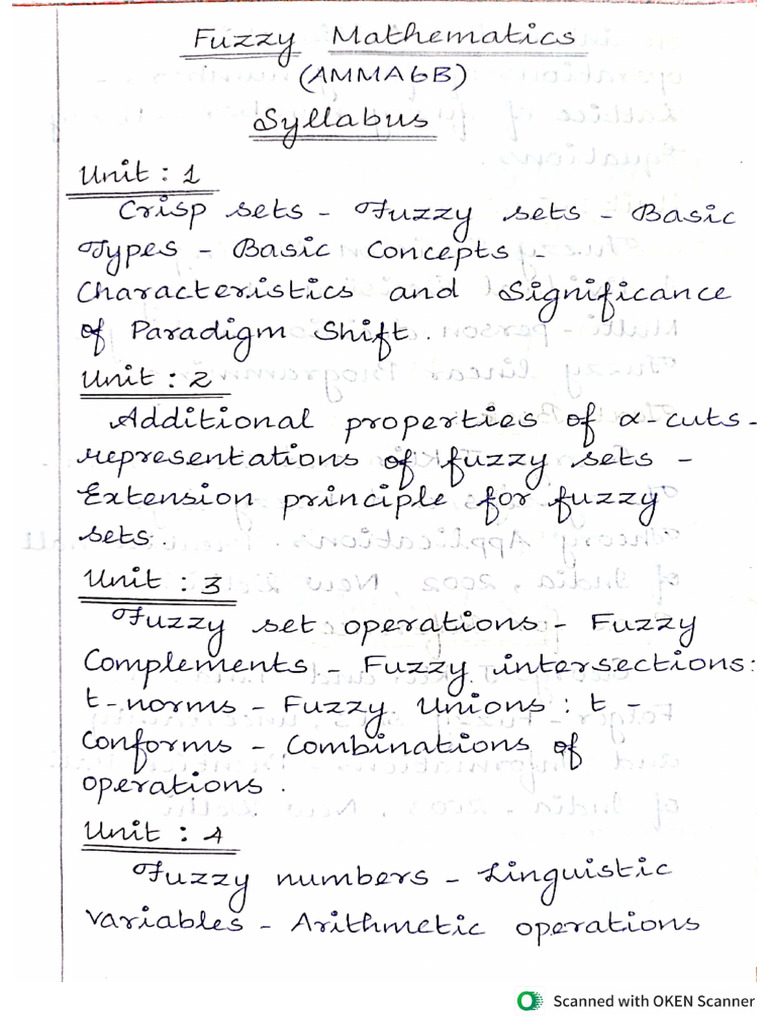 Fuzzy Mathematics
(AMMA6B)
Syllabus
Unit : 1
Crisp sets - Fuzzy sets - Basic
Types - Basic Concepts -
Characteristics and Significance
of Paradigm Shift.
Unit : 2
Additional properties of α-cuts-
representations of fuzzy sets -
Extension principle for fuzzy
sets.
Unit : 3
Fuzzy set operations - Fuzzy
Complements - Fuzzy intersections:
t-norms - Fuzzy Unions : t -
Conforms - Combinations of
operations.
Unit : 4
Fuzzy numbers - Linguistic
Variables - Arithmetic operations
Scanned with OKEN Scanner